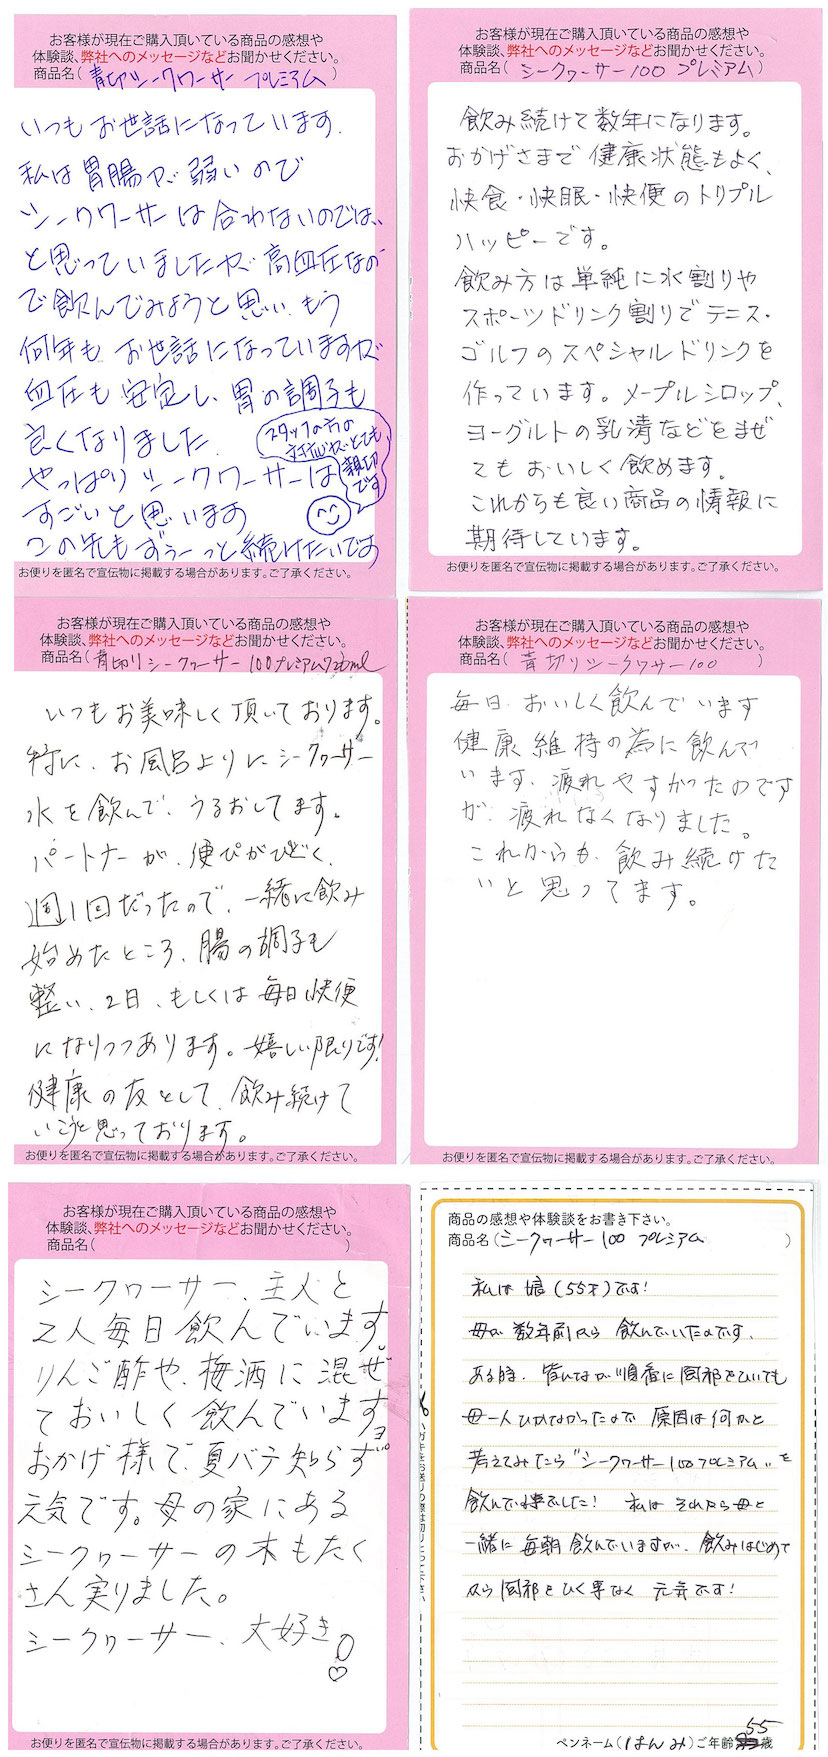 お客様が現在ご購入頂いている商品の感想や
体験談、弊社へのメッセージなどお聞かせください。
商品名(青切シークワーサー プレミアム)
いつもお世話になっています.
私は胃腸が弱いので
シークワーサーは合わないのでは、
と思っていましたが高血圧なの
で飲んでみようと思い、もう
何年もお世話になっていますが
血圧も安定し、胃の調子も
良くなりました.
スタッフの方の
対応がとても
親切
です
やっぱりシークワーサーは
すごいと思います
この先もずぅーっと続けたいです
お便りを匿名で宣伝物に掲載する場合があります。ご了承ください。
お客様が現在ご購入頂いている商品の感想や
体験談、弊社へのメッセージなどお聞かせください。
商品名(シークヮーサー100 プレミアム)
飲み続けて数年になります。
おかげさまで健康状態もよく、
快食・快眠・快便のトリプル
ハッピーです。
飲み方は単純に水割りや
スポーツドリンク割りでテニス・
ゴルフのスペシャルドリンクを
作っています。メープルシロップ、
ヨーグルトの乳清などをまぜ
てもおいしく飲めます。
これからも良い商品の情報に
期待しています。
お便りを匿名で宣伝物に掲載する場合があります。ご了承ください。
お客様が現在ご購入頂いている商品の感想や
体験談、弊社へのメッセージなどお聞かせください。
商品名(青切りシークヮーサー100プレミアム720ml
いつもお美味しく頂いております。
特に、お風呂よりにシークヮーサー
水を飲んで、うるおしてます。
パートナーが、便ぴがひどく、
週1回だったので、一緒に飲み
始めたところ、腸の調子も
整い、2日、もしくは毎日快便
になりつつあります。嬉しい限りです!
健康の友として、飲み続けて
いこうと思っております。
お便りを匿名で宣伝物に掲載する場合があります。ご了承ください。
お客様が現在ご購入頂いている商品の感想や
体験談、弊社へのメッセージなどお聞かせください。
商品名(青切りシークワサー100)
毎日、おいしく飲んでいます
健康維持の為に飲んで
います、疲れやすかったのです
が、疲れなくなりました。
これからも、飲み続けた
いと思ってます。
お便りを匿名で宣伝物に掲載する場合があります。ご了承ください。
お客様が現在ご購入頂いている商品の感想や
体験談、弊社へのメッセージなどお聞かせください。
商品名( )
シークヮーサー、主人と
2人毎日飲んでいます。
りんご酢や、梅酒に混ぜ
ておいしく飲んでいますヨ。
おかげ様で、夏バテ知らず
元気です。母の家にある
シークヮーサーの木もたく
さん実りました。
シークヮーサー、大好き♡
お便りを匿名で宣伝物に掲載する場合があります。ご了承ください。
商品の感想や体験談をお書き下さい。
商品名(シークヮーサー100 プレミアム )
私は娘(55才)です!
母が数年前から飲んでいたのです.
ある時、皆んなが順番に風邪をひいても
母一人ひかなかったので原因は何かと
考えてみたら"シークヮーサー100プレミアム"を
飲んでいる事でした! 私はそれから母と
一緒に毎朝飲んでいますが、飲みはじめて
から風邪をひく事なく元気です!
ハガキをお送りの際は切りとって下さい
ペンネーム(はんみ)ご年齢 55歳